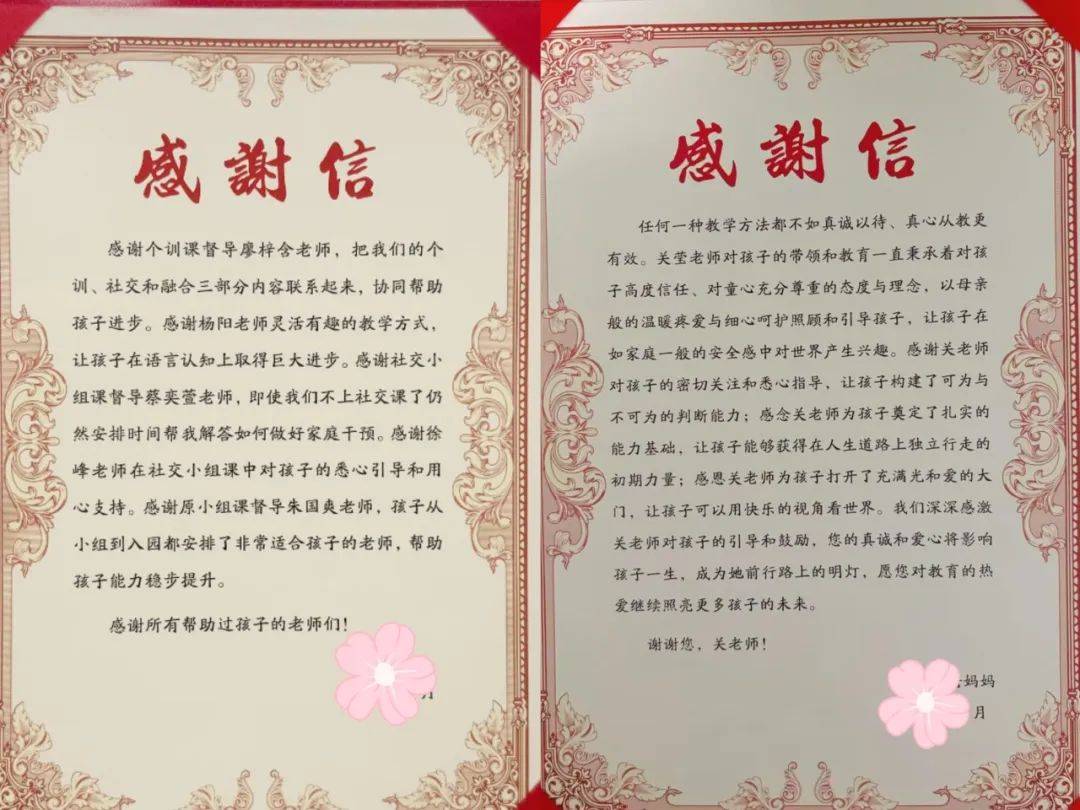 感謝信
感谢个训课督导廖梓含老师，把我们的个
训、社交和融合三部分内容联系起来，协同帮助
孩子进步。感谢杨阳老师灵活有趣的教学方式，
让孩子在语言认知上取得巨大进步。感谢社交小
组课督导蔡奕萱老师，即使我们不上社交课了仍
然安排时间帮我解答如何做好家庭干预。感谢徐
峰老师在社交小组课中对孩子的悉心引导和用
心支持。感谢原小组课督导朱国爽老师，孩子从
小组到入园都安排了非常适合孩子的老师，帮助
孩子能力稳步提升。
感谢所有帮助过孩子的老师们！
月
感謝信
任何一种教学方法都不如真诚以待、真心从教更
有效。关莹老师对孩子的带领和教育一直秉承着对孩
子高度信任、对童心充分尊重的态度与理念，以母亲
般的温暖疼爱与细心呵护照顾和引导孩子，让孩子在
如家庭一般的安全感中对世界产生兴趣。感谢关老师
对孩子的密切关注和悉心指导，让孩子构建了可为与
不可为的判断能力；感念关老师为孩子奠定了扎实的
能力基础，让孩子能够获得在人生道路上独立行走的
初期力量；感恩关老师为孩子打开了充满光和爱的大
门，让孩子可以用快乐的视角看世界。我们深深感激
关老师对孩子的引导和鼓励，您的真诚和爱心将影响
孩子一生，成为她前行路上的明灯，愿您对教育的热
爱继续照亮更多孩子的未来。
谢谢您，关老师！
妈妈
月